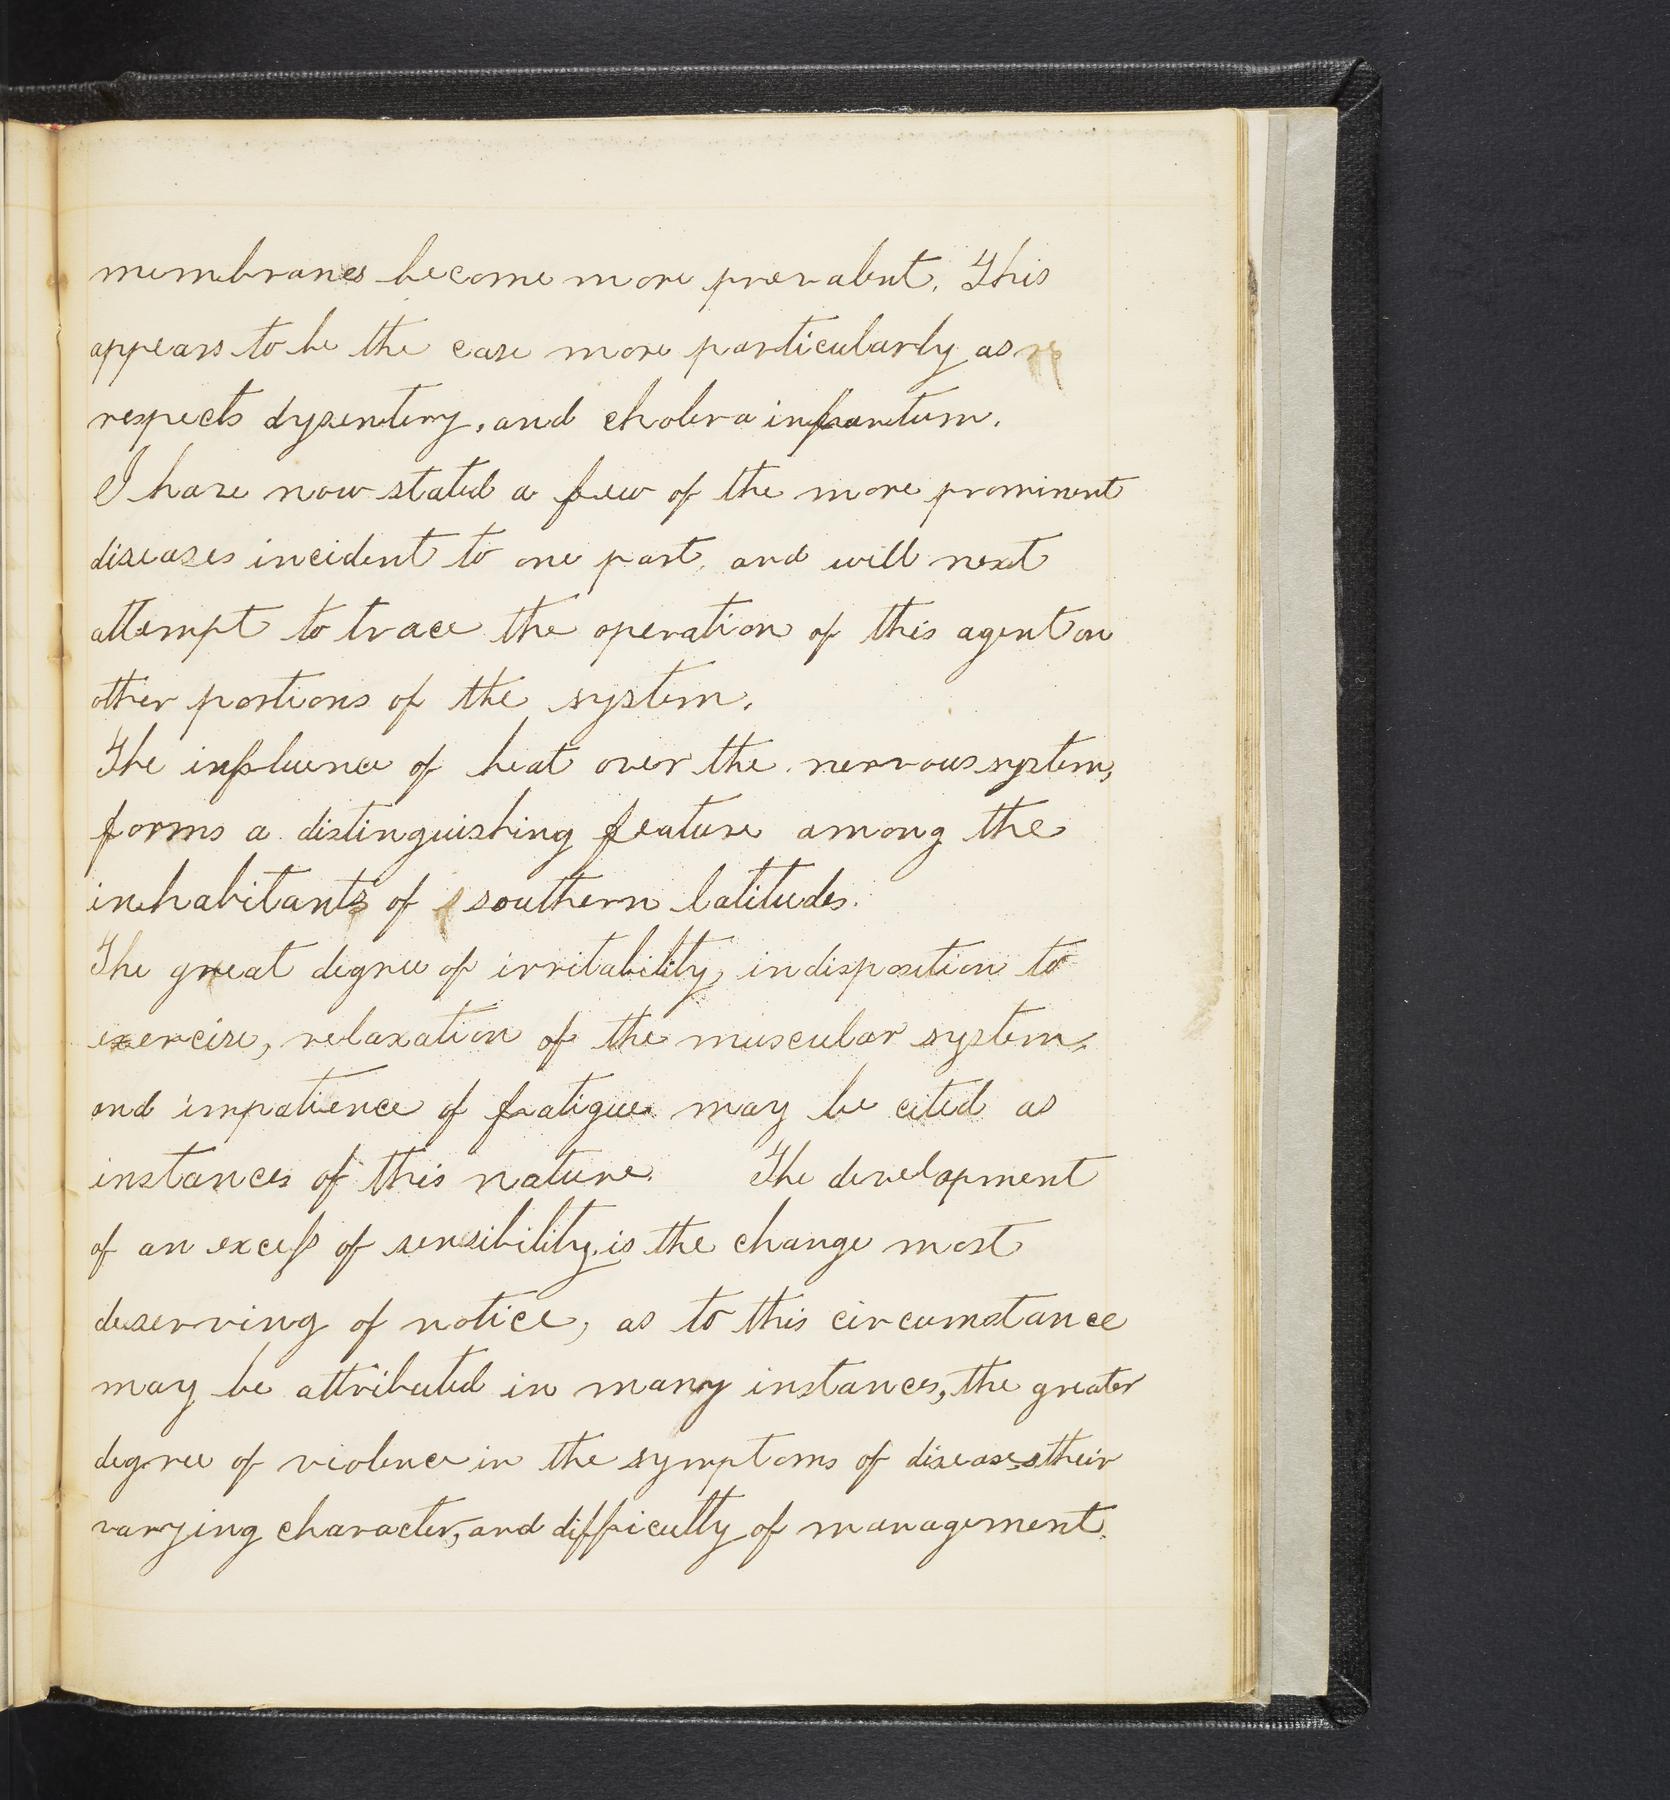 membranes become more prevalent. This
appears to be the case more particularly as
respects dysentery, and cholera infantum.
I have now stated a few of the more prominent
diseases incident to one part, and will next
attempt to trace the operation of this agent on
other portions of the system.
The influence of heat over the nervous system,
forms a distinguishing feature among the
inhabitants of southern latitudes.
The great degree of irritability, indisposition to
exercise, relaxation of the muscular system,
and impatience of fatigue may be cited as
instances of this nature. The development
of an excess of sensibility, is the change most
deserving of notice, as to this circumstance
may be attributed in many instances, the greater
degree of violence in the symptoms of diseases their
varying character, and difficulty of management.